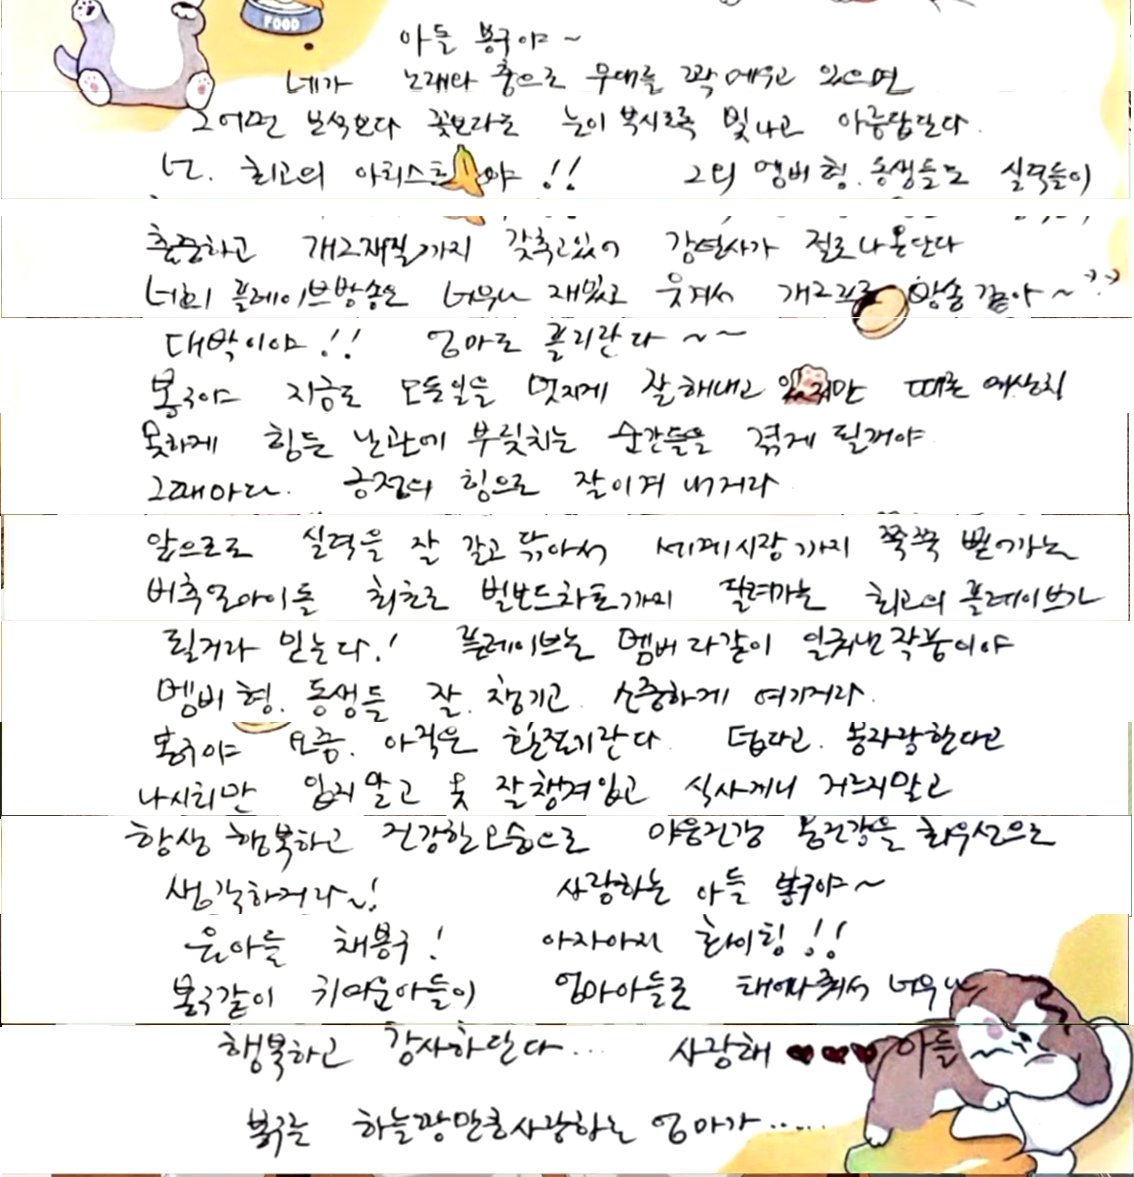 FOOD
아들 봉구야~
네가 노래와 춤으로 무대를 꽉 메우고 있으면
그 어떤 보석보다 꽃보다도 눈이 부시도록 빛나고 아름답단다.
넌. 최고의 아티스트야!! 그외 멤버 형.동생들도 실력들이
출중하고 개그재질까지 갖추고 있어 감탄사가 절로 나온단다
너희 플레이브방송은 너무나 재밌고 웃겨서 개그프로 방송 같아~^^
대박이야!! 엄마도 플리란다~~
봉구야 지금도 모든일을 멋지게 잘 해내고 있지만 때론 예상치
못하게 힘든 난관에 부딪치는 순간들을 겪게 될꺼야
그때마다. 긍정의 힘으로 잘 이겨 내거라
앞으로도 실력을 잘 갈고 닦아서 세계시장까지 쭉쭉 뻗어가는
버추얼아이돌 최초로 빌보드차트까지 달려가는 최고의 플레이브가
될거라 믿는다.! 플레이브는 멤버 다같이 일궈낸 작품이야
멤버 형. 동생들 잘 챙기고 소중하게 여기거라.
봉구야 요즘. 아직은 환절기란다. 덥다고. 몸자랑한다고
나시티만 입지말고 옷 잘 챙겨입고 식사끼니 거르지말고
항상 행복하고 건강한 모습으로 야옹건강 몸건강을 최우선으로
생각하거라~! 사랑하는 아들 봉구야~
은아들 채봉구! 아자아자 화이팅!!
봉구같이 귀여운아들이 엄마아들로 태어나줘서 너무나
행복하고 감사하단다... 사랑해 ♥♥♥ 아들
봉구를 하늘땅만큼사랑하는 엄마가.....